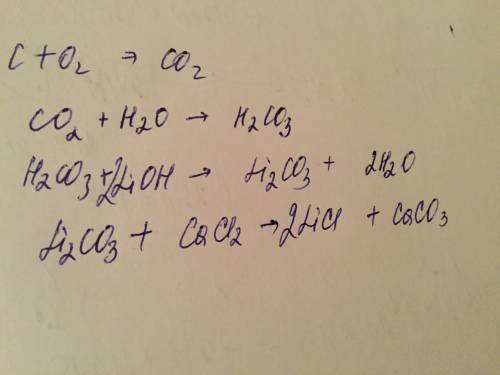 C + O₂ → CO₂
CO₂ + H₂O → H₂CO₃
H₂CO₃ + 2LiOH → Li₂CO₃ + 2H₂O
Li₂CO₃ + CaCl₂ → 2LiCl + CaCO₃